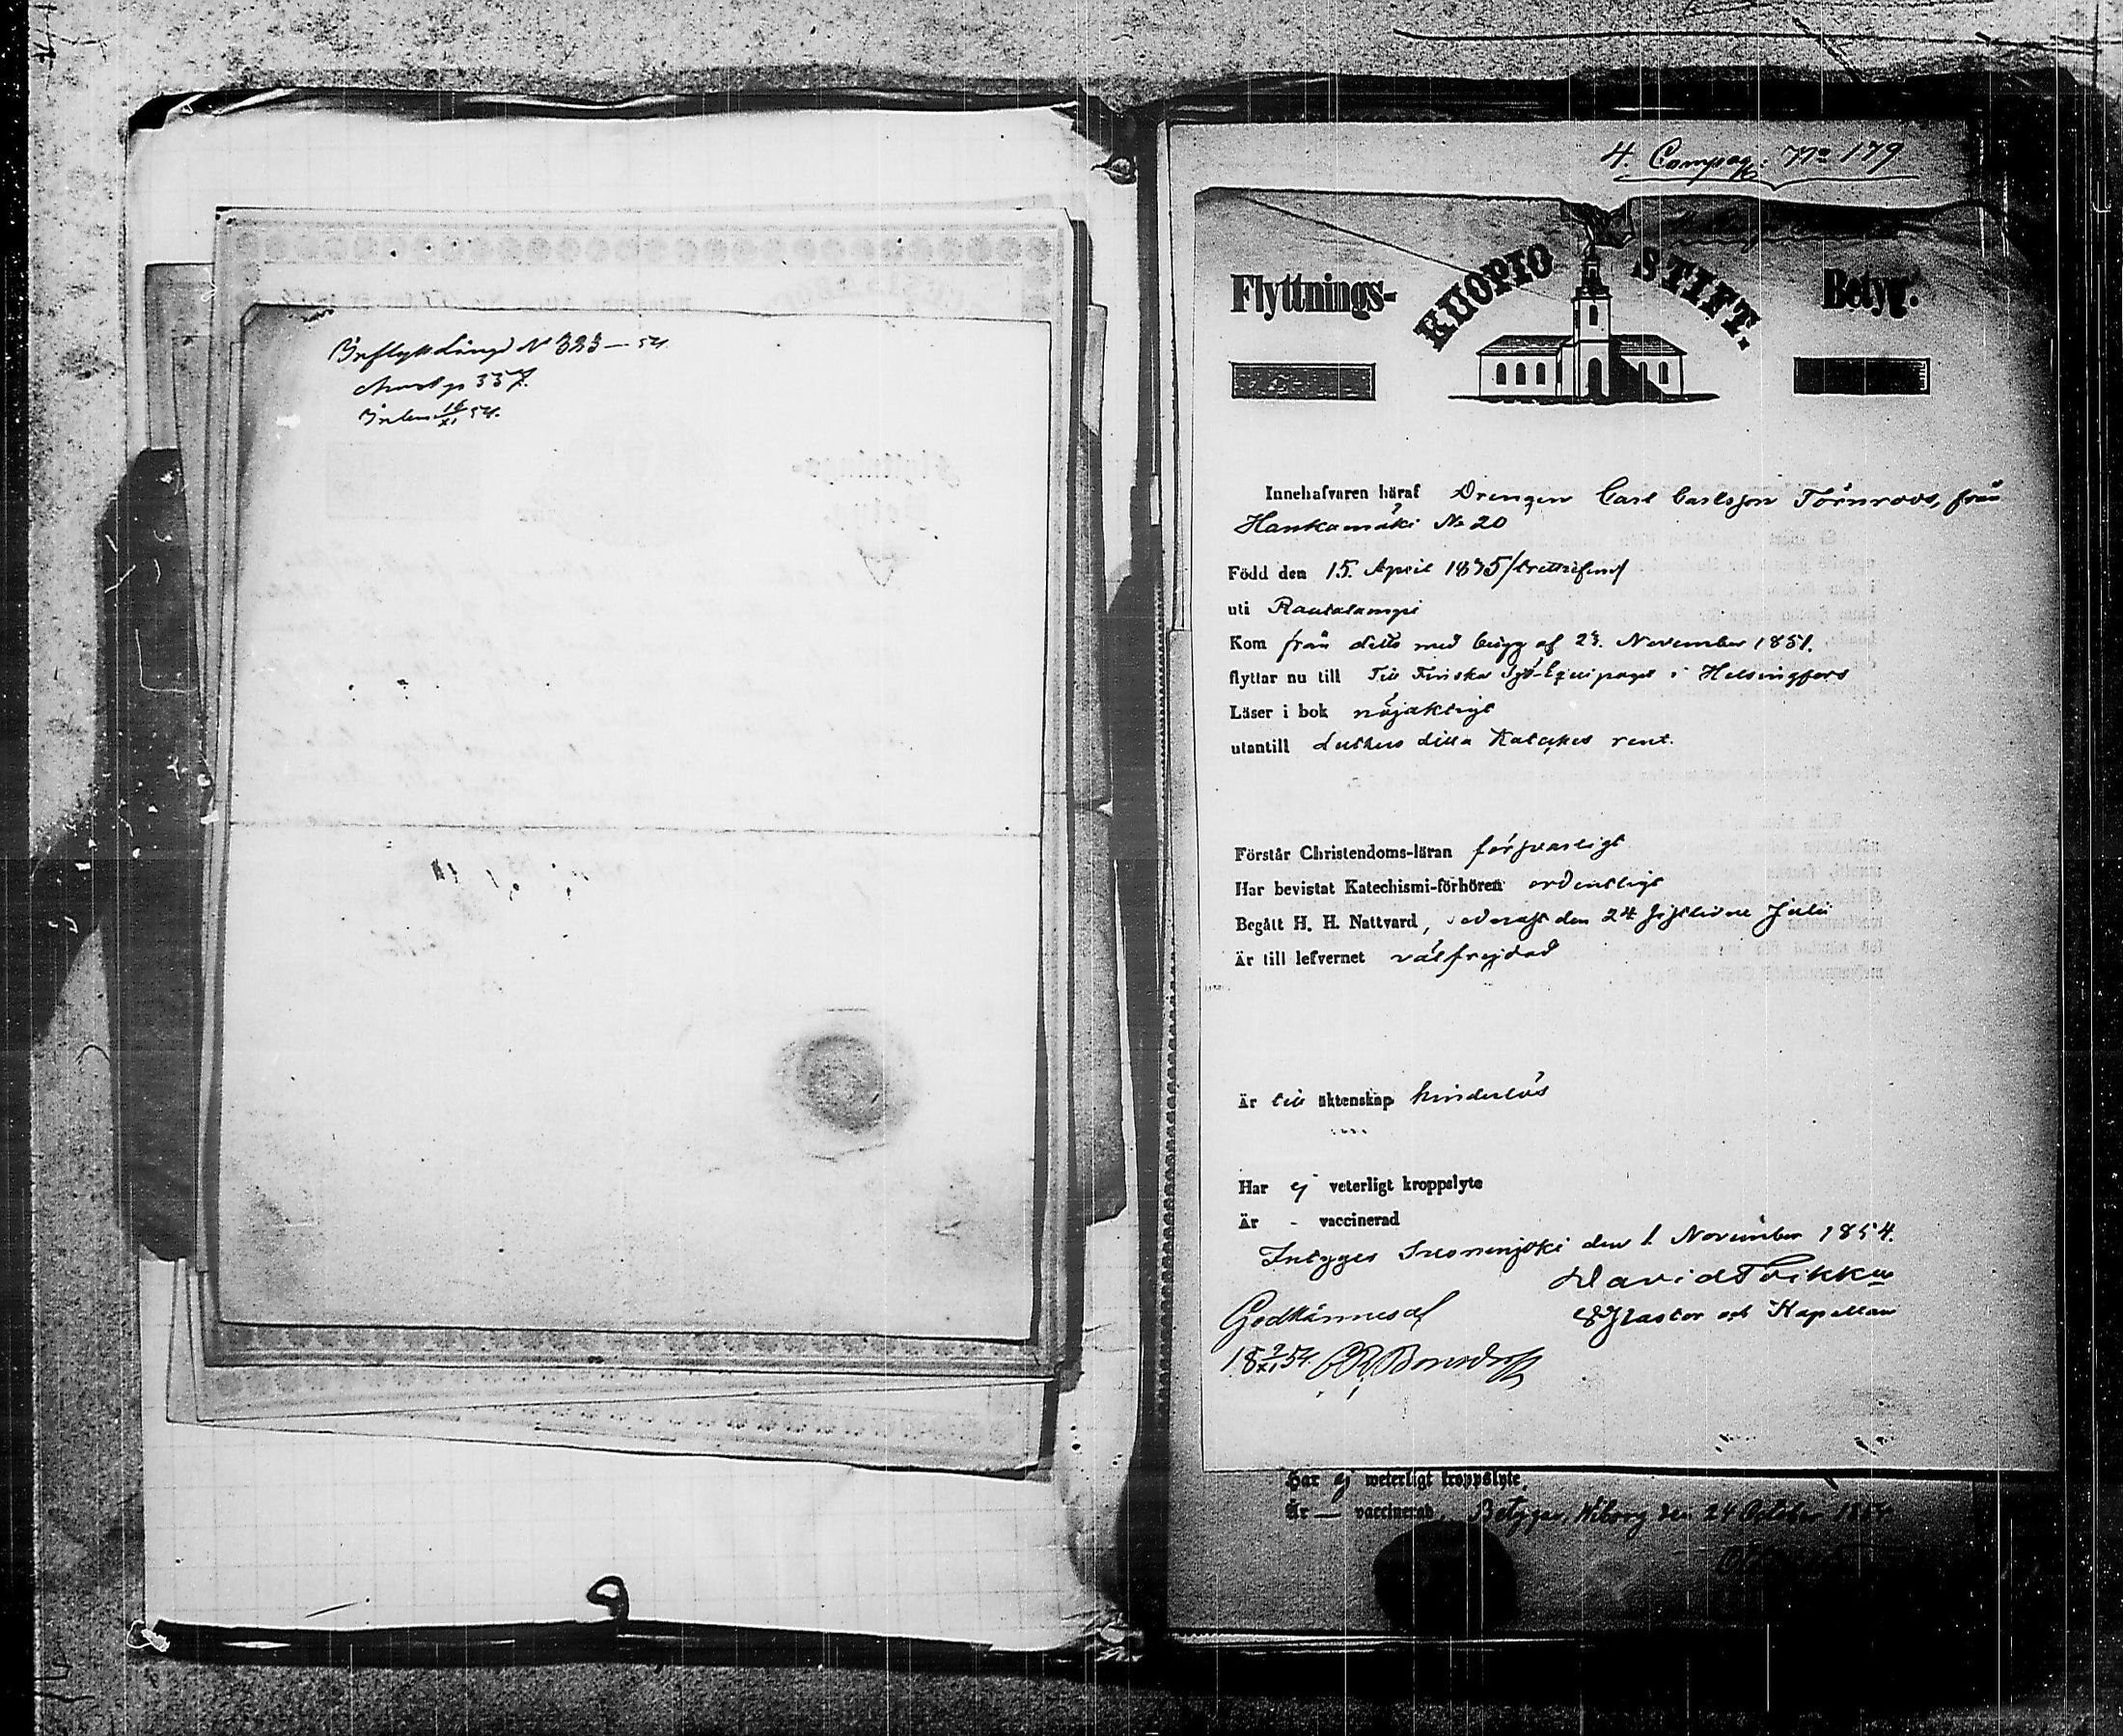 Inflytt Längd N 323 — 54
337.
Inlem 16/XI 54.
4. Compag: No 179
Flyttnings- KUOPIO STIFT. Betyg.
Innehafvaren häraf Drengen Carl Carlsson Törnroos, från
Hankamäki No 20
Född den 15. April 1835 /trettiofem/
uti Rautalampi
Kom från ditto med betyg af 23. November 1851.
flyttar nu till Till Finska Sjö-Equipaget i Helsingfors
Läser i bok nöjaktigt
utantill Luthers lilla Kateches rent.
Förstår Christendoms-läran försvarligt
Har bevistat Katechismi-förhören ordentligt
Begått H. H. Nattvard, senast den 24 sistlidne Julii
Är till lefvernet välfrejdad
Är till äktenskap hinderlös
Har ej veterligt kroppslyte
Är - vaccinerad
Intygges Suonenjoki den 1. November 1854.
David
Pastor och Kapellan
Godkännes af
18 2/XI 54.
Har ej weterligt kroppslyte.
Är — vaccinerad. Betygar, Wiborg den 24 October 1854.
9